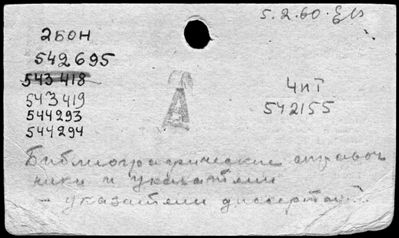 5.2.60.
2БОН
542695
543418
543419
544293
544294
ЧИТ
542155
Библиографические справоч
ники и указатели
– указатели диссертац.